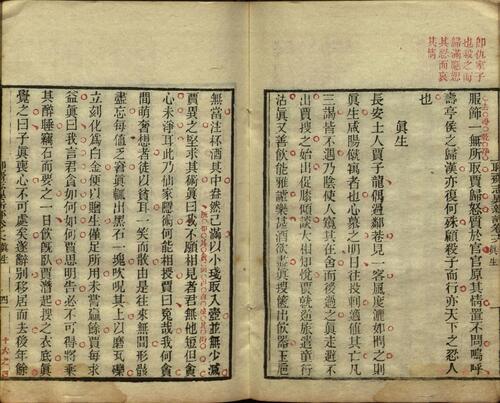 卽仇家子
也殺之
其忍而哀
其情
服飾一無所取賈歸怒質於官官原其情置不問嗚呼
壽亭侯之歸漢亦復何殊顧殺子而行亦天下之忍人
也
眞生
長安士人賈子龍偶過鄰巷見一客風度灑如問之則
眞生咸陽僦寓者也心慕之明日往投刺適值其亡凡
三謁皆不遇乃陰使人窺其在舍而後過之眞走避不
出賈搜之始出促膝傾談大相知悅賈就逆旅遣童行
沽眞又善飲能雅謔樂甚酒欲盡眞搜篋出飲器玉卮
無當注杯酒其中盎然已滿以小琖取入壺並無少減
賈異之堅求其術眞曰我不願相見者君無他短但貪
心未淨耳此乃仙家隱術何能相授賈曰冤哉我何貪
間萌奢想者徒以貧耳一笑而散由是往來無間形骸
盡忘每值乏窘眞輒出黑石一塊吹呪其上以磨瓦礫
立刻化為白金便以贈生僅足所用未嘗贏餘賈每求
益眞曰我言君貪如何如何賈思明告必不可得將乘
其醉睡竊石而要之一日飲旣臥賈潛起搜之衣底眞
覺之曰子眞喪心不可處矣遂辭別移居而去後年餘
四